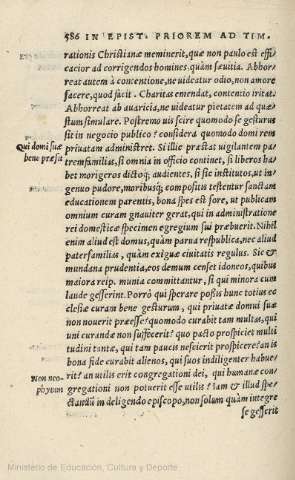 586 IN EPIST. PRIOREM AD TIM.
rationis Christianæ meminerit, quæ non paulo est effi
cacior ad corrigendos homines, quàm sæuitia. Abhor
reat autem à contentione, ne uideatur odio, non amore
facere, quod facit. Charitas emendat, contentio irritat.
Abhorreat ab auaricia, ne uideatur pietatem ad quæ-
stum simulare. Postremo uis scire quomodo se gesturus
sit in negocio publico? considera quomodo domi rem
Qui domi suæ
bene præsit
priuatam administret. Si illic præstat uigilantem pa
tremfamiliâs, si omnia in officio continet, si liberos ha
bet morigeros dictoq; audientes, si sic institutos, ut in
genuo pudore, moribusq; compositis testentur sanctam
educationem parentis, bona spes est fore, ut publicam
omnium curam gnauiter gerat, qui in administratione
rei domesticæ specimen egregium sui præbuerit. Nihil
enim aliud est domus, quàm parua respublica, nec aliud
paterfamiliâs, quàm exiguæ ciuitatis regulus. Sic &
mundana prudentia, eos demum censet idoneos, quibus
maiora reip. munia committantur, si qui minora cum
laude gesserint. Porrò qui sperare possis hunc totius ec
clesiæ curam bene gesturum, qui priuatæ domui suæ
non nouerit præesse? quomodo curabit tam multas, qui
uni curandæ non suffecerit? quo pacto prospiciet multi
tudini tantæ, qui tam paucis nescierit prospicere? an is
bona fide curabit alienos, qui suos indiligenter habue
Non neo-
phytum
rit? an utilis erit congregationi dei, qui humanæ con
gregationi non potuerit esse utilis? Iam & illud spe
ctandum in deligendo episcopo, non solum quàm integre
se gesserit
Ministerio de Educación, Cultura y Deporte